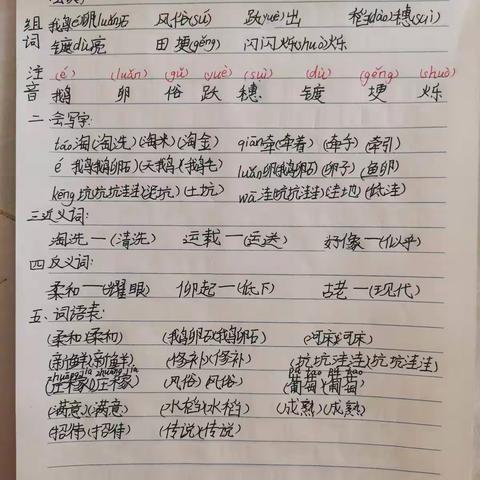 组 鹅é卵luǎn石 风俗(sú) 跃(yuè)出 稻(dào)穗(suì)
词 镀dù亮 田埂(gěng) 闪闪烁(shuò)烁
注 (é) (luǎn) (sú) yuè (suì) (dù) (gěng) (shuò)
音 鹅 卵 俗 跃 穗 镀 埂 烁
二 会写字:
táo淘(淘洗)(淘米)(淘金) qiān牵(牵着)(牵手)(牵引)
é 鹅(鹅卵石)(天鹅)(鹅毛) luǎn卵(鹅卵石)(卵子)(鱼卵)
kēng坑坑坑洼洼(泥坑)(土坑) wā洼(坑坑洼洼)(洼地)(低洼)
三近义词:
淘洗—(清洗) 运载—(运送) 好像—(似乎)
四 反义词:
柔和—(耀眼) 仰起—(低下) 古老—(现代)
五、词语表:
(柔和)(柔和) (鹅卵石)(鹅卵石) (河床)(河床)
(新鲜)(新鲜) (修补)(修补) (坑坑洼洼)(坑坑洼洼)
zhuāng jia zhuāng jia pú tao pú tao
(庄稼)(庄稼) (风俗)(风俗) (葡萄)(葡萄)
(满意)(满意) (水稻)(水稻) (成熟)(成熟)
(招待)(招待) (传说)(传说)